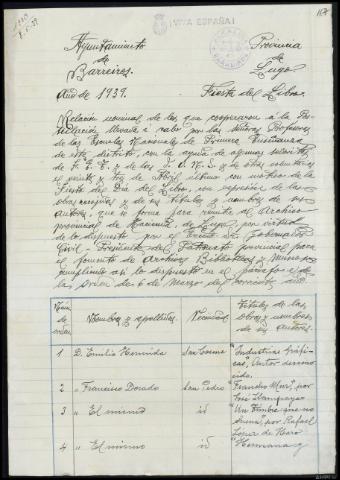 ¡VIVA ESPAÑA!
Ayuntamiento
de
Barreiros.
Provincia
de
Lugo.
Año de 1939.
Fiesta del Libro.
Relación nominal de los que cooperaron a la
llevada a cabo por las Señoras Profesoras
de las Escuelas Nacionales de Primera Enseñanza
de este distrito, con la ayuda de algunos
de F.E.T. y de las J.O.N.S.
el veinte y tres de Abril último con motivo de la
Fiesta del Día del Libro, con expresión de las
obras y de sus títulos y nombres de sus
autores, que se forma para remitir al Archivo
provincial de Hacienda, de Lugo, por virtud
de lo dispuesto por el Excmo. Sr. Gobernador
Civil - Presidente del Patronato provincial para
el fomento de Archivos Bibliotecas y Museos
cumpliendo así lo dispuesto en el párrafo
la Orden de 6 de Marzo del corriente año
Núm.
de
orden
Nombres y apellidos.
Vecindad.
Títulos de las
obras y nombres
de sus autores.
1 D. Emilio Hermida San Cosme "Industrias Gráfi-
cas", Autor descono-
cido.
2 " Francisco Dorado San Pedro
3 " El mismo id "Un hombre que no
suena", por Rafael
López de Haro
4 " El mismo id "Hermanas